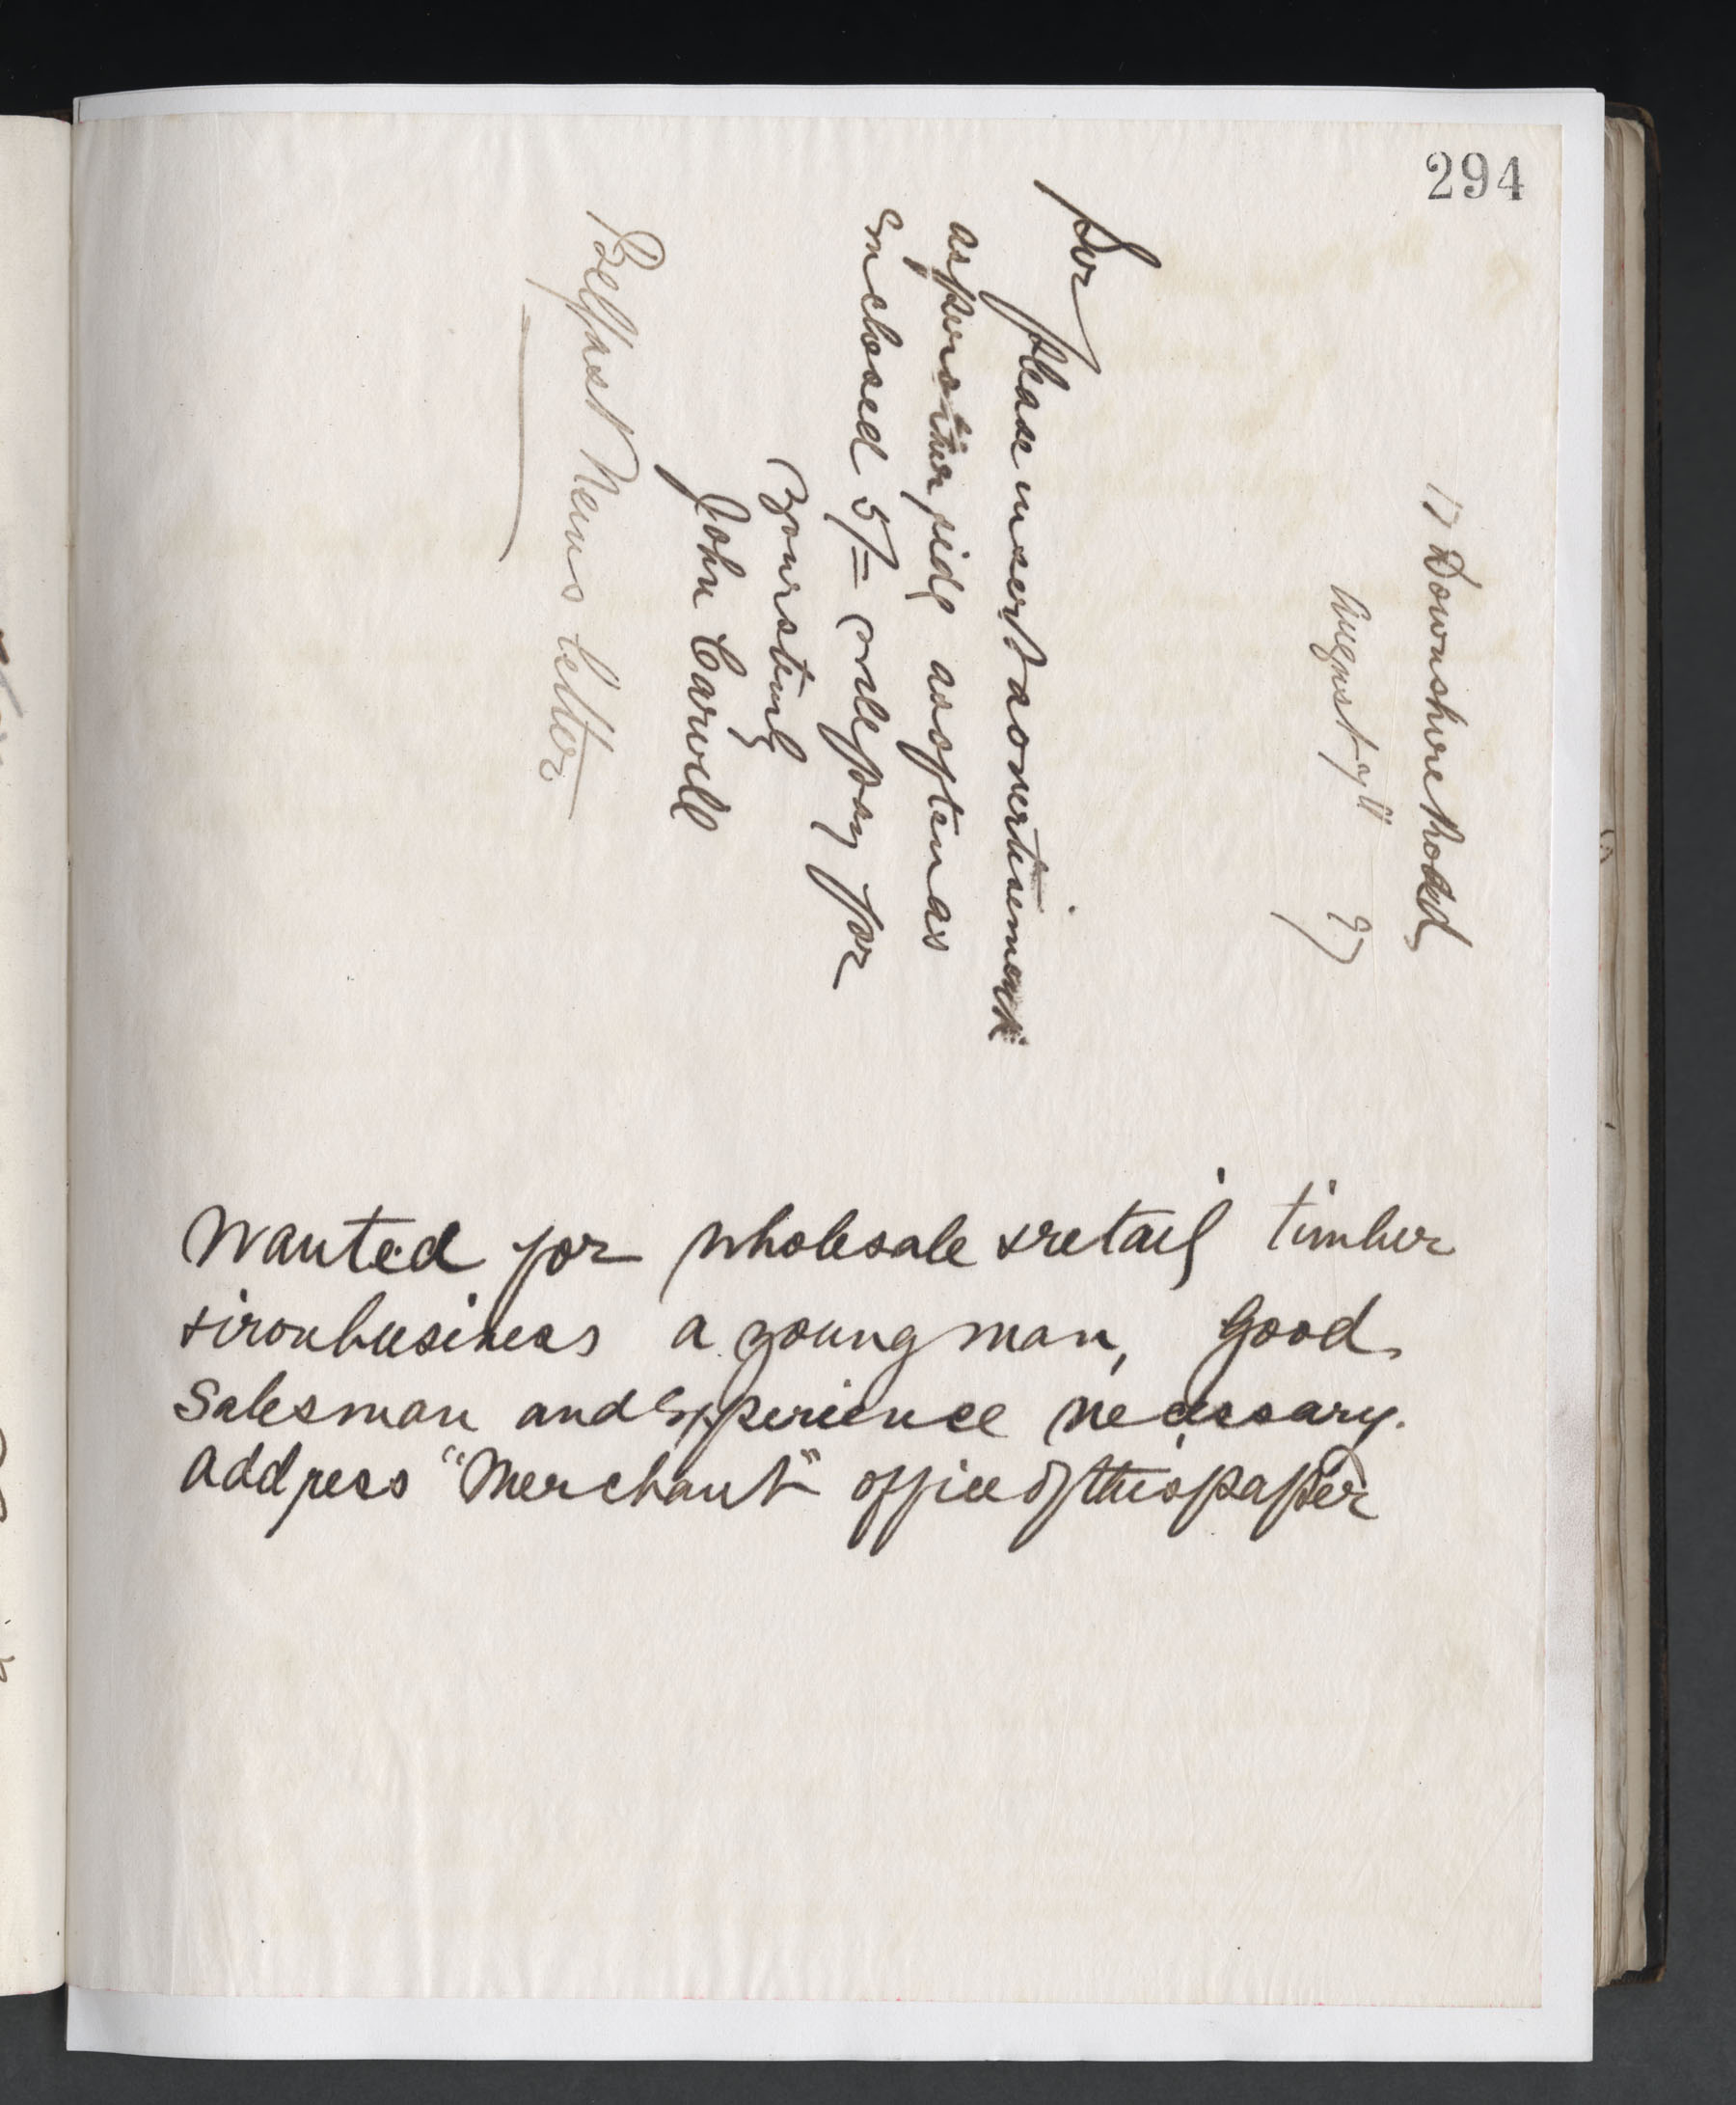 294
17 Downshire Road
August 97
Sir
Please insert advertisement
as per other side as often as
Enclosed 5/= will pay for
Yours truly
John Carvill
Belfast News Letter
Wanted for wholesale & retail timber
& iron business a young man, good
Salesman and Experience necessary.
Address "Merchant" office of this paper